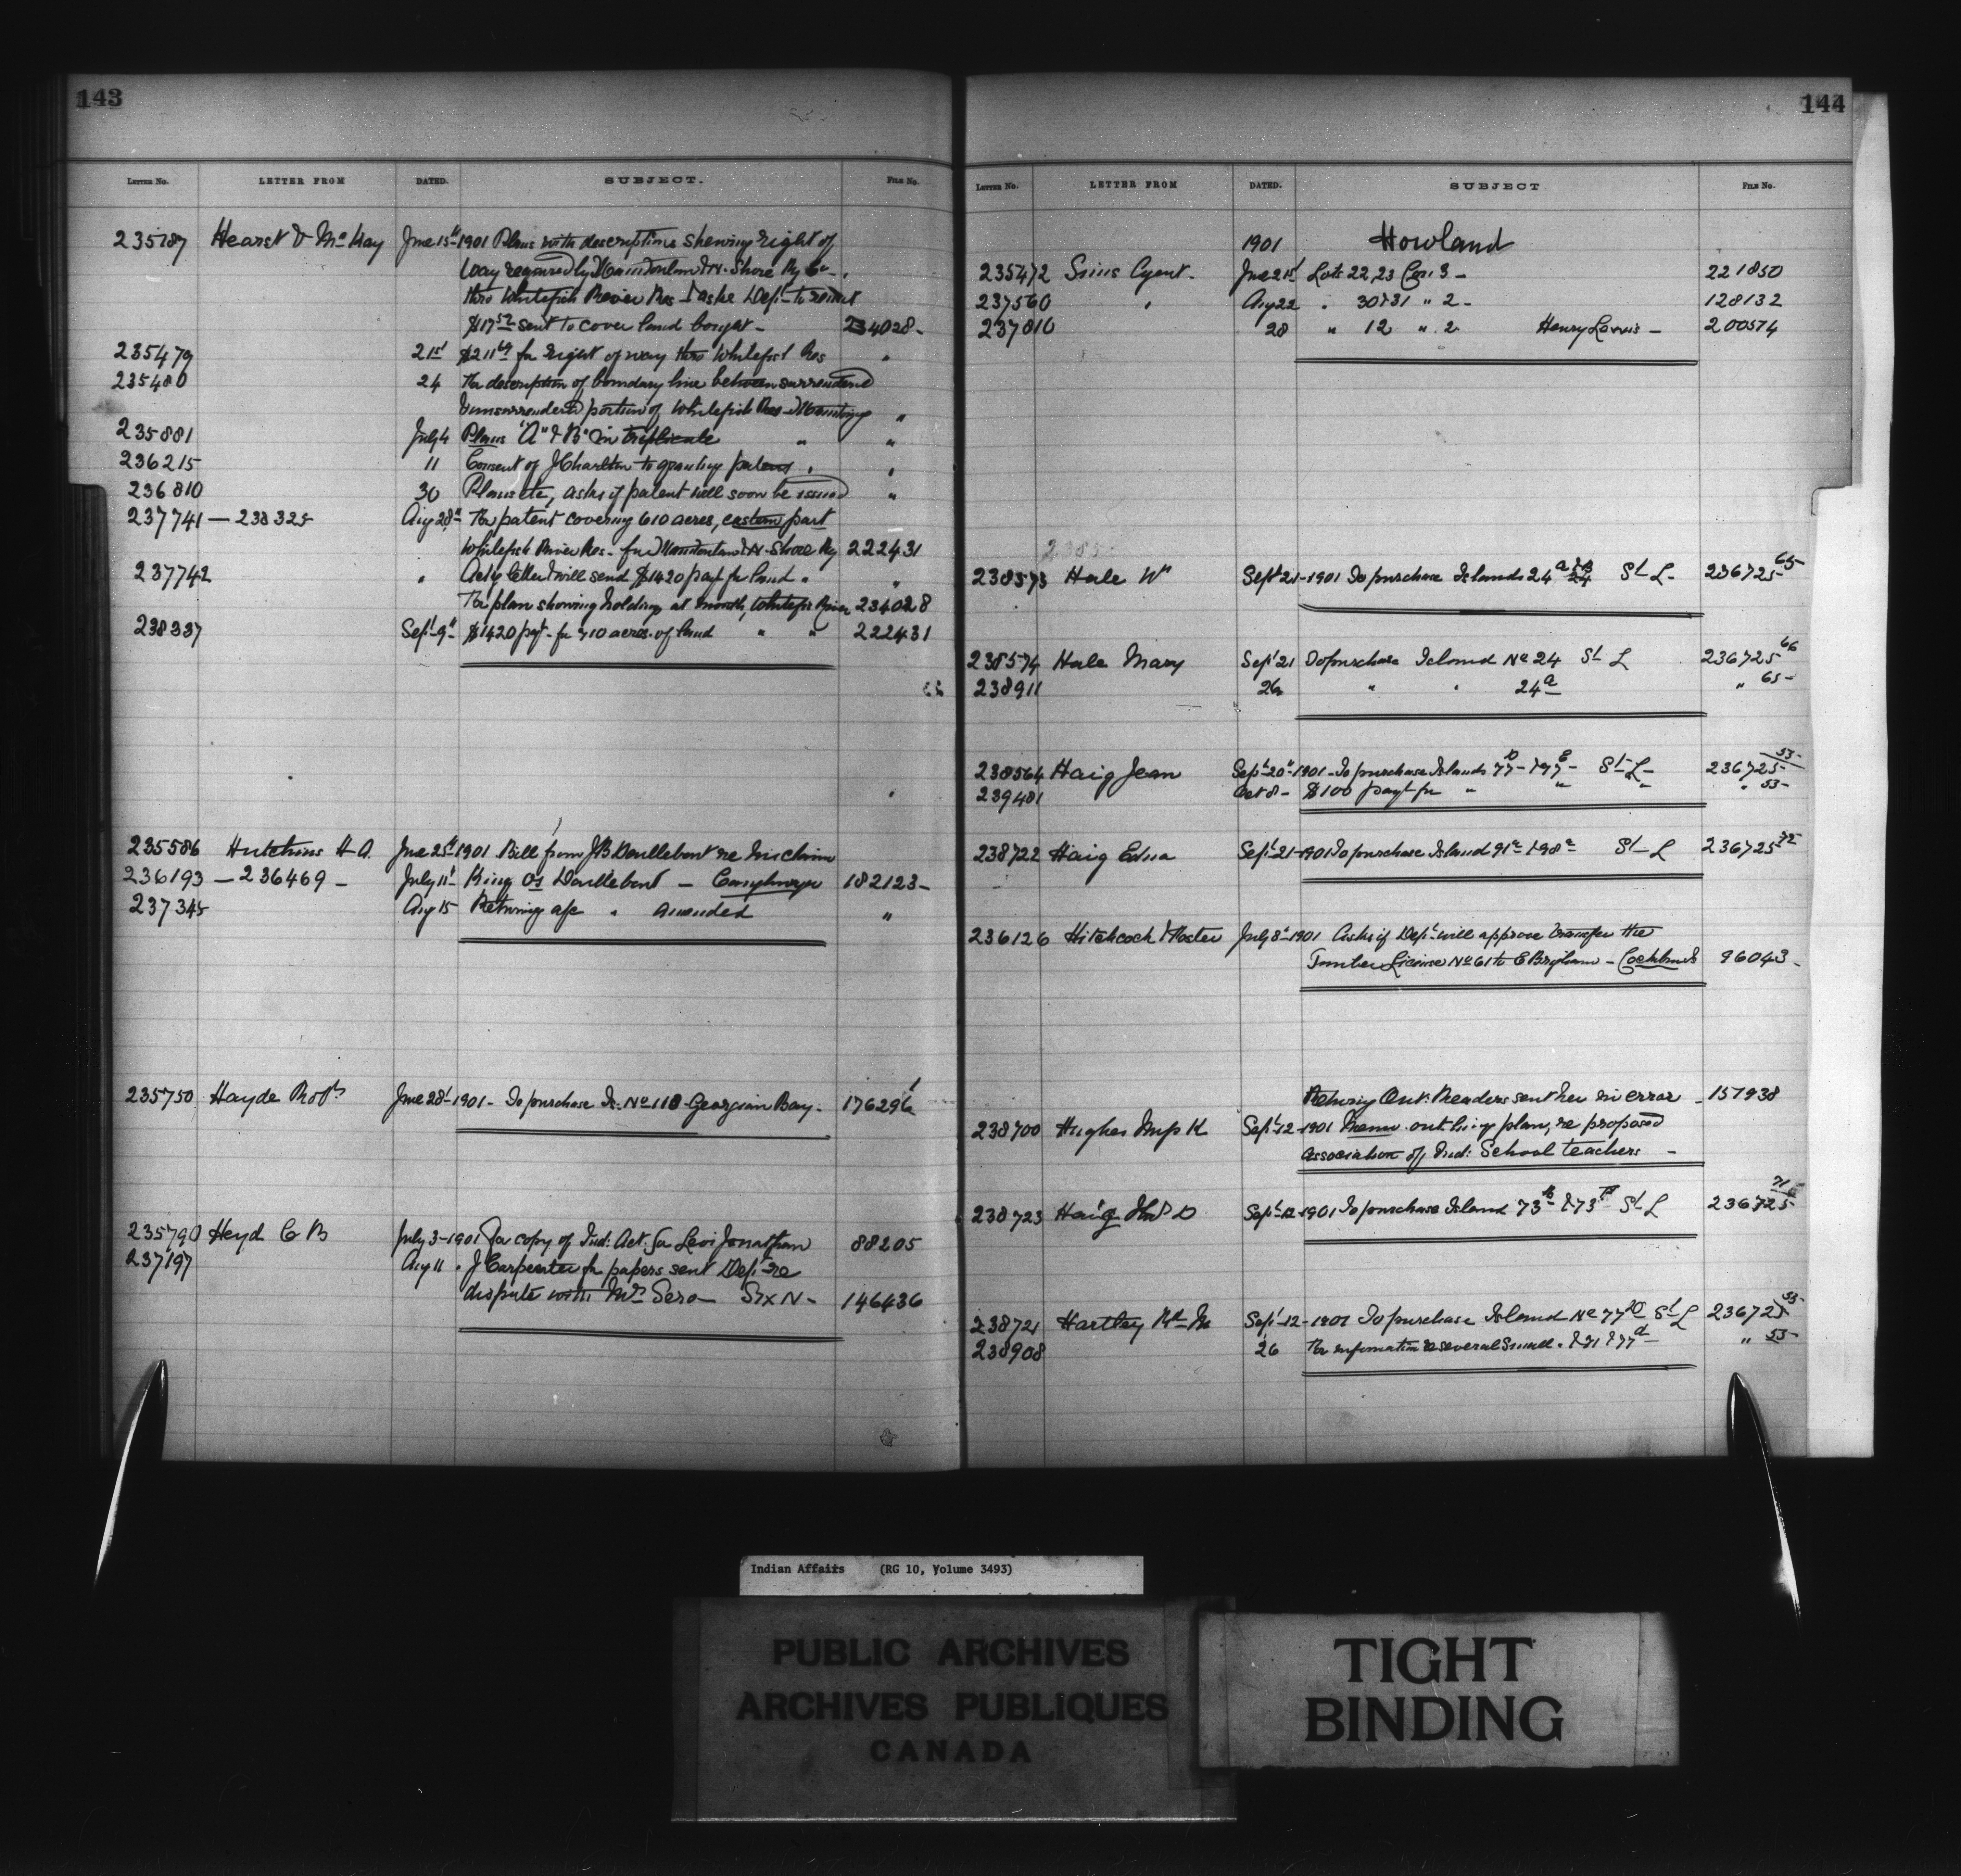 143
LETTER NO. LETTER FROM DATED. SUBJECT. FILE NO.
235187 Hearst & McKay June 15th 1901 Plans with descriptions shewing right of
way required by Manitoulin & N. Shore Ry Co.
thro Whitefish River Res & asks Dept to remit
$17.52 sent to cover land bought - 234028 -
235479 21st $211.69 for right of way thro Whitefish Res "
235480 24 For description of boundary line between surrendered
& unsurrendered portion of Whitefish Res "
235881 July 4 Plans "A" & "B" in triplicate " "
236215 11 Consent of J Charlton to granting patent "
236810 30 Plans etc, asks if patent will soon be issued "
237741 - 238325 Aug 28th For patent covering 610 acres, eastern part
Whitefish River Res - for Manitoulin & N. Shore Ry 222431
237742 " Ackg letter & will send $1420 payt for land " "
For plan showing holding at mouth, Whitefish River 234028
238337 Sept 9th $1420 payt - for 710 acres of land " " 222431
235586 Hutchins H A. June 25th 1901 Bill from JB Doullebout re his claim
236193 - 236469 - July 11th King vs Doullebout - Caughnaga 182123 -
237345 Aug 15 Returning a/c " amended "
235750 Hayde Robt June 28th 1901 - To purchase Is. No 118 Georgian Bay - 176296
235790 Heyd C B July 3 - 1901 For copy of Ind: Act. for Levi Jonathan 88205
237197 Aug 11 " J Carpenter for papers sent Dept re
dispute with Mrs Sero - Six N - 146436
144
LETTER NO. LETTER FROM DATED. SUBJECT FILE NO.
1901 Howland
235472 Sims Agent. June 21st Lots 22, 23 Con. 3 - 221850
237560 " Aug 22 " 30 & 31 " 2 - 128132
237810 28 " 12 " 2 Henry - 200574
2385
238573 Hale Wm Sept 21 - 1901 To purchase Islands 24a St L - 236725 65
238574 Hale Mary Sept 21 To purchase Island No 24 St L 236725 66
238911 26 " " 24a " 65 -
238564 Haig Jean Sept 20th 1901 - To purchase Islands 77D - & 77E - St L - 236725 53 -
239481 Oct 8 - $100 payt for " " " " 53 -
238722 Haig Edna Sept 21 - 1901 To purchase Island 91a & 98a St L 236725 72
236126 Hitchcock & Foster July 8th 1901 Asks if Dept will approve transfer the
Timber License No 61 to E Brigham - Cockburn Is 96043 -
Returng Ont. Readers sent her in error - 157938
238700 Hughes K Sept 12 - 1901 Memo. outlining plan, re proposed
association of Ind: School teachers -
238723 Haig Thos D Sept 12 - 1901 To purchase Island 73 & 73 St L 236725 71
238721 Hartley Sept 12 - 1901 To purchase Island No 77D St L 236725 53 -
238908 26 For information re several small " " 53 -
Indian Affairs (RG 10, Volume 3493)
PUBLIC ARCHIVES
ARCHIVES PUBLIQUES
CANADA
TIGHT
BINDING